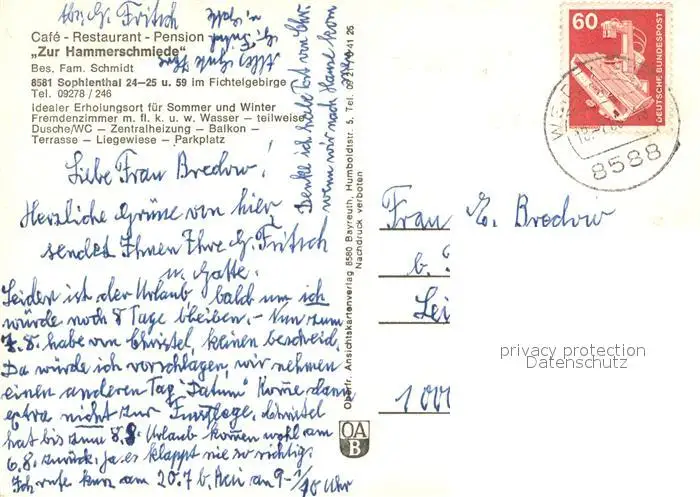 Ihr. G. Fritsch
Café - Restaurant - Pension
„Zur Hammerschmiede"
Bes. Fam. Schmidt
8581 Sophienthal 24-25 u. 59 im Fichtelgebirge
Tel. 09278 / 246
Idealer Erholungsort für Sommer und Winter
Fremdenzimmer m. fl. k. u. w. Wasser — teilweise
Dusche/WC — Zentralheizung — Balkon —
Terrasse — Liegewiese — Parkplatz
Liebe Frau Bredow!
Herzliche Grüße von hier
sendet Ihnen Ihre G. Fritsch
u. Gatte.
Leider ist der Urlaub bald um, ich
würde noch 8 Tage bleiben. - Nun zum
7.8. habe von Christel keinen bescheid,
Da würde ich vorschlagen, wir nehmen
einen anderen Tag "Datum" Kome dann
extra nicht zur Fußpflege. Christel
hat bis zum 8.8. Urlaub komen wohl am
6.8. zurück, ja es klappt nie so richtig.
Ich rufe kurz am 20.7 b. an 9-1/2 10 Uhr
Denke ich habe Post von Chr.
wenn wir nach Hause kom
Oberfr. Ansichtskartenverlag 8580 Bayreuth, Humboldtstr. 5, Tel. 09 21 41 25
Nachdruck verboten
OA
B
60
DEUTSCHE BUNDESPOST
8588
Frau E. Bredow
b.
Lei
1000
privacy protection
Datenschutz